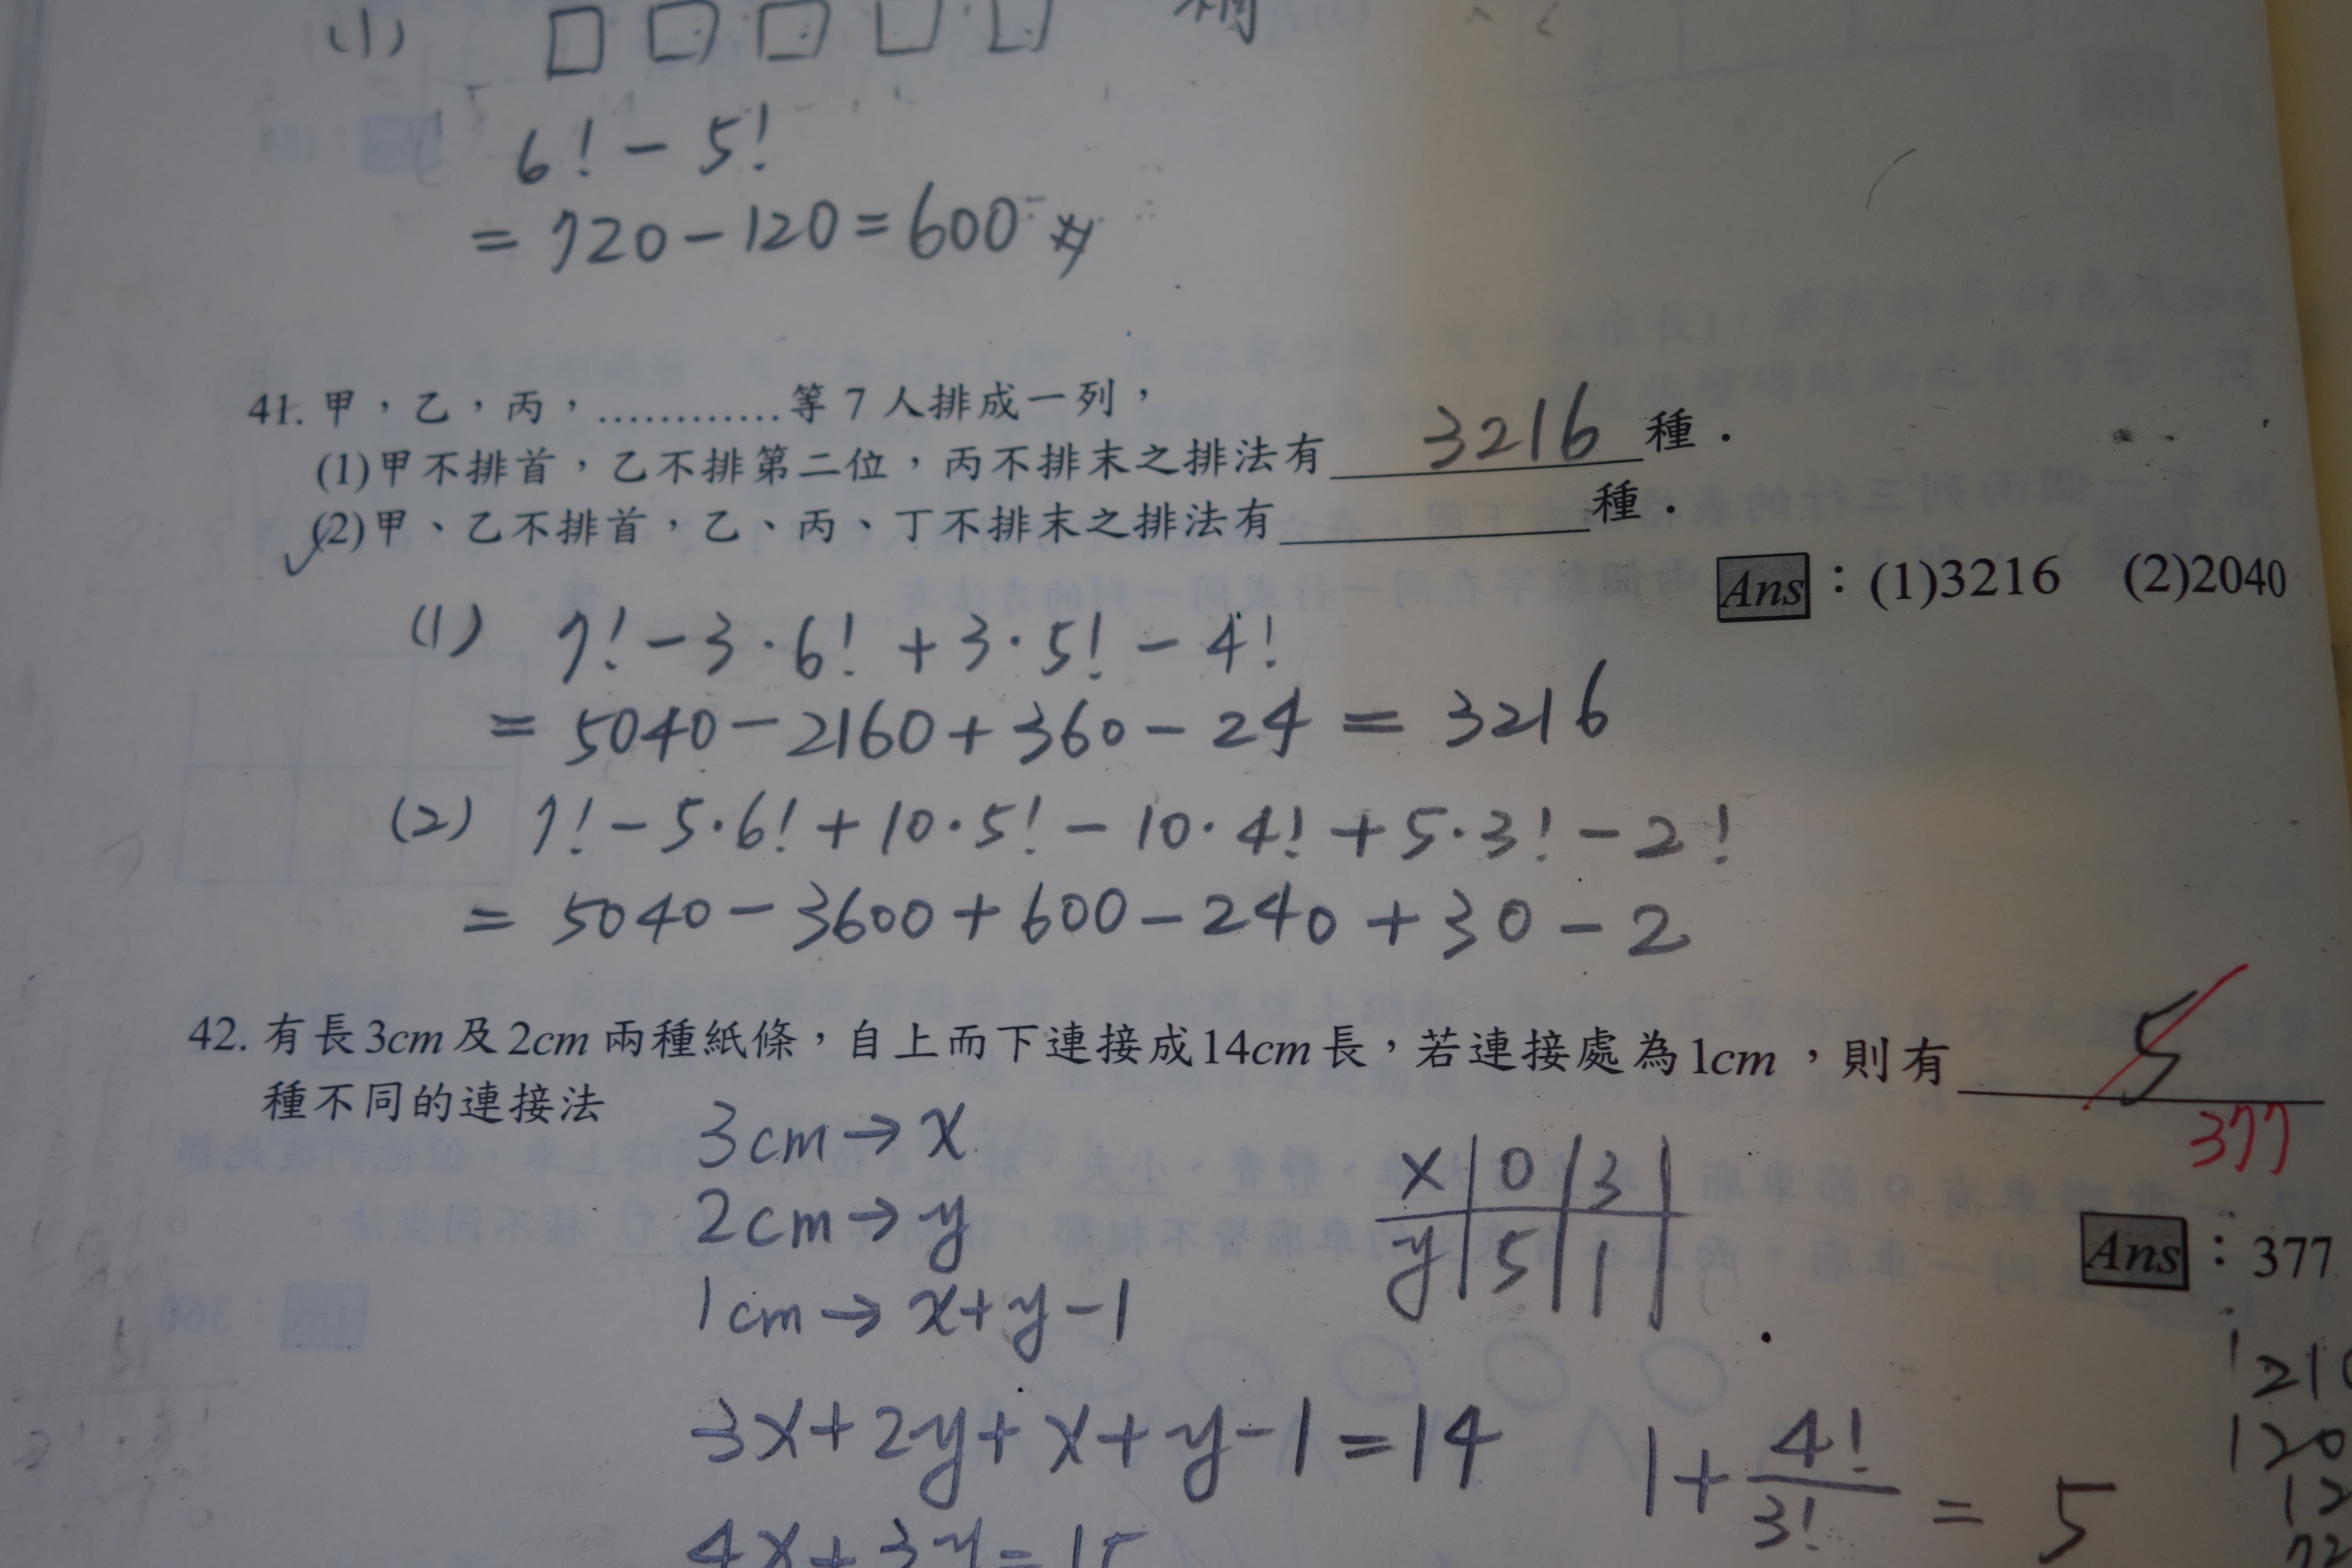 (1) □ □ □ □ □
6! - 5!
= 720 - 120 = 600
41. 甲，乙，丙，.............等 7 人排成一列，
(1)甲不排首，乙不排第二位，丙不排末之排法有 3216 種．
(2)甲、乙不排首，乙、丙、丁不排末之排法有 種．
Ans：(1)3216 (2)2040
(1) 7! - 3·6! + 3·5! - 4!
= 5040 - 2160 + 360 - 24 = 3216
(2) 7! - 5·6! + 10·5! - 10·4! + 5·3! - 2!
= 5040 - 3600 + 600 - 240 + 30 - 2
42. 有長3cm及2cm兩種紙條，自上而下連接成14cm長，若連接處為1cm，則有 5
377
種不同的連接法
3cm → x
2cm → y
1cm → x+y-1
x | 0 | 3 |
y | 5 | 1 |
Ans：377
3x+2y+x+y-1=14
1+4!/3! = 5
4x+3y=15